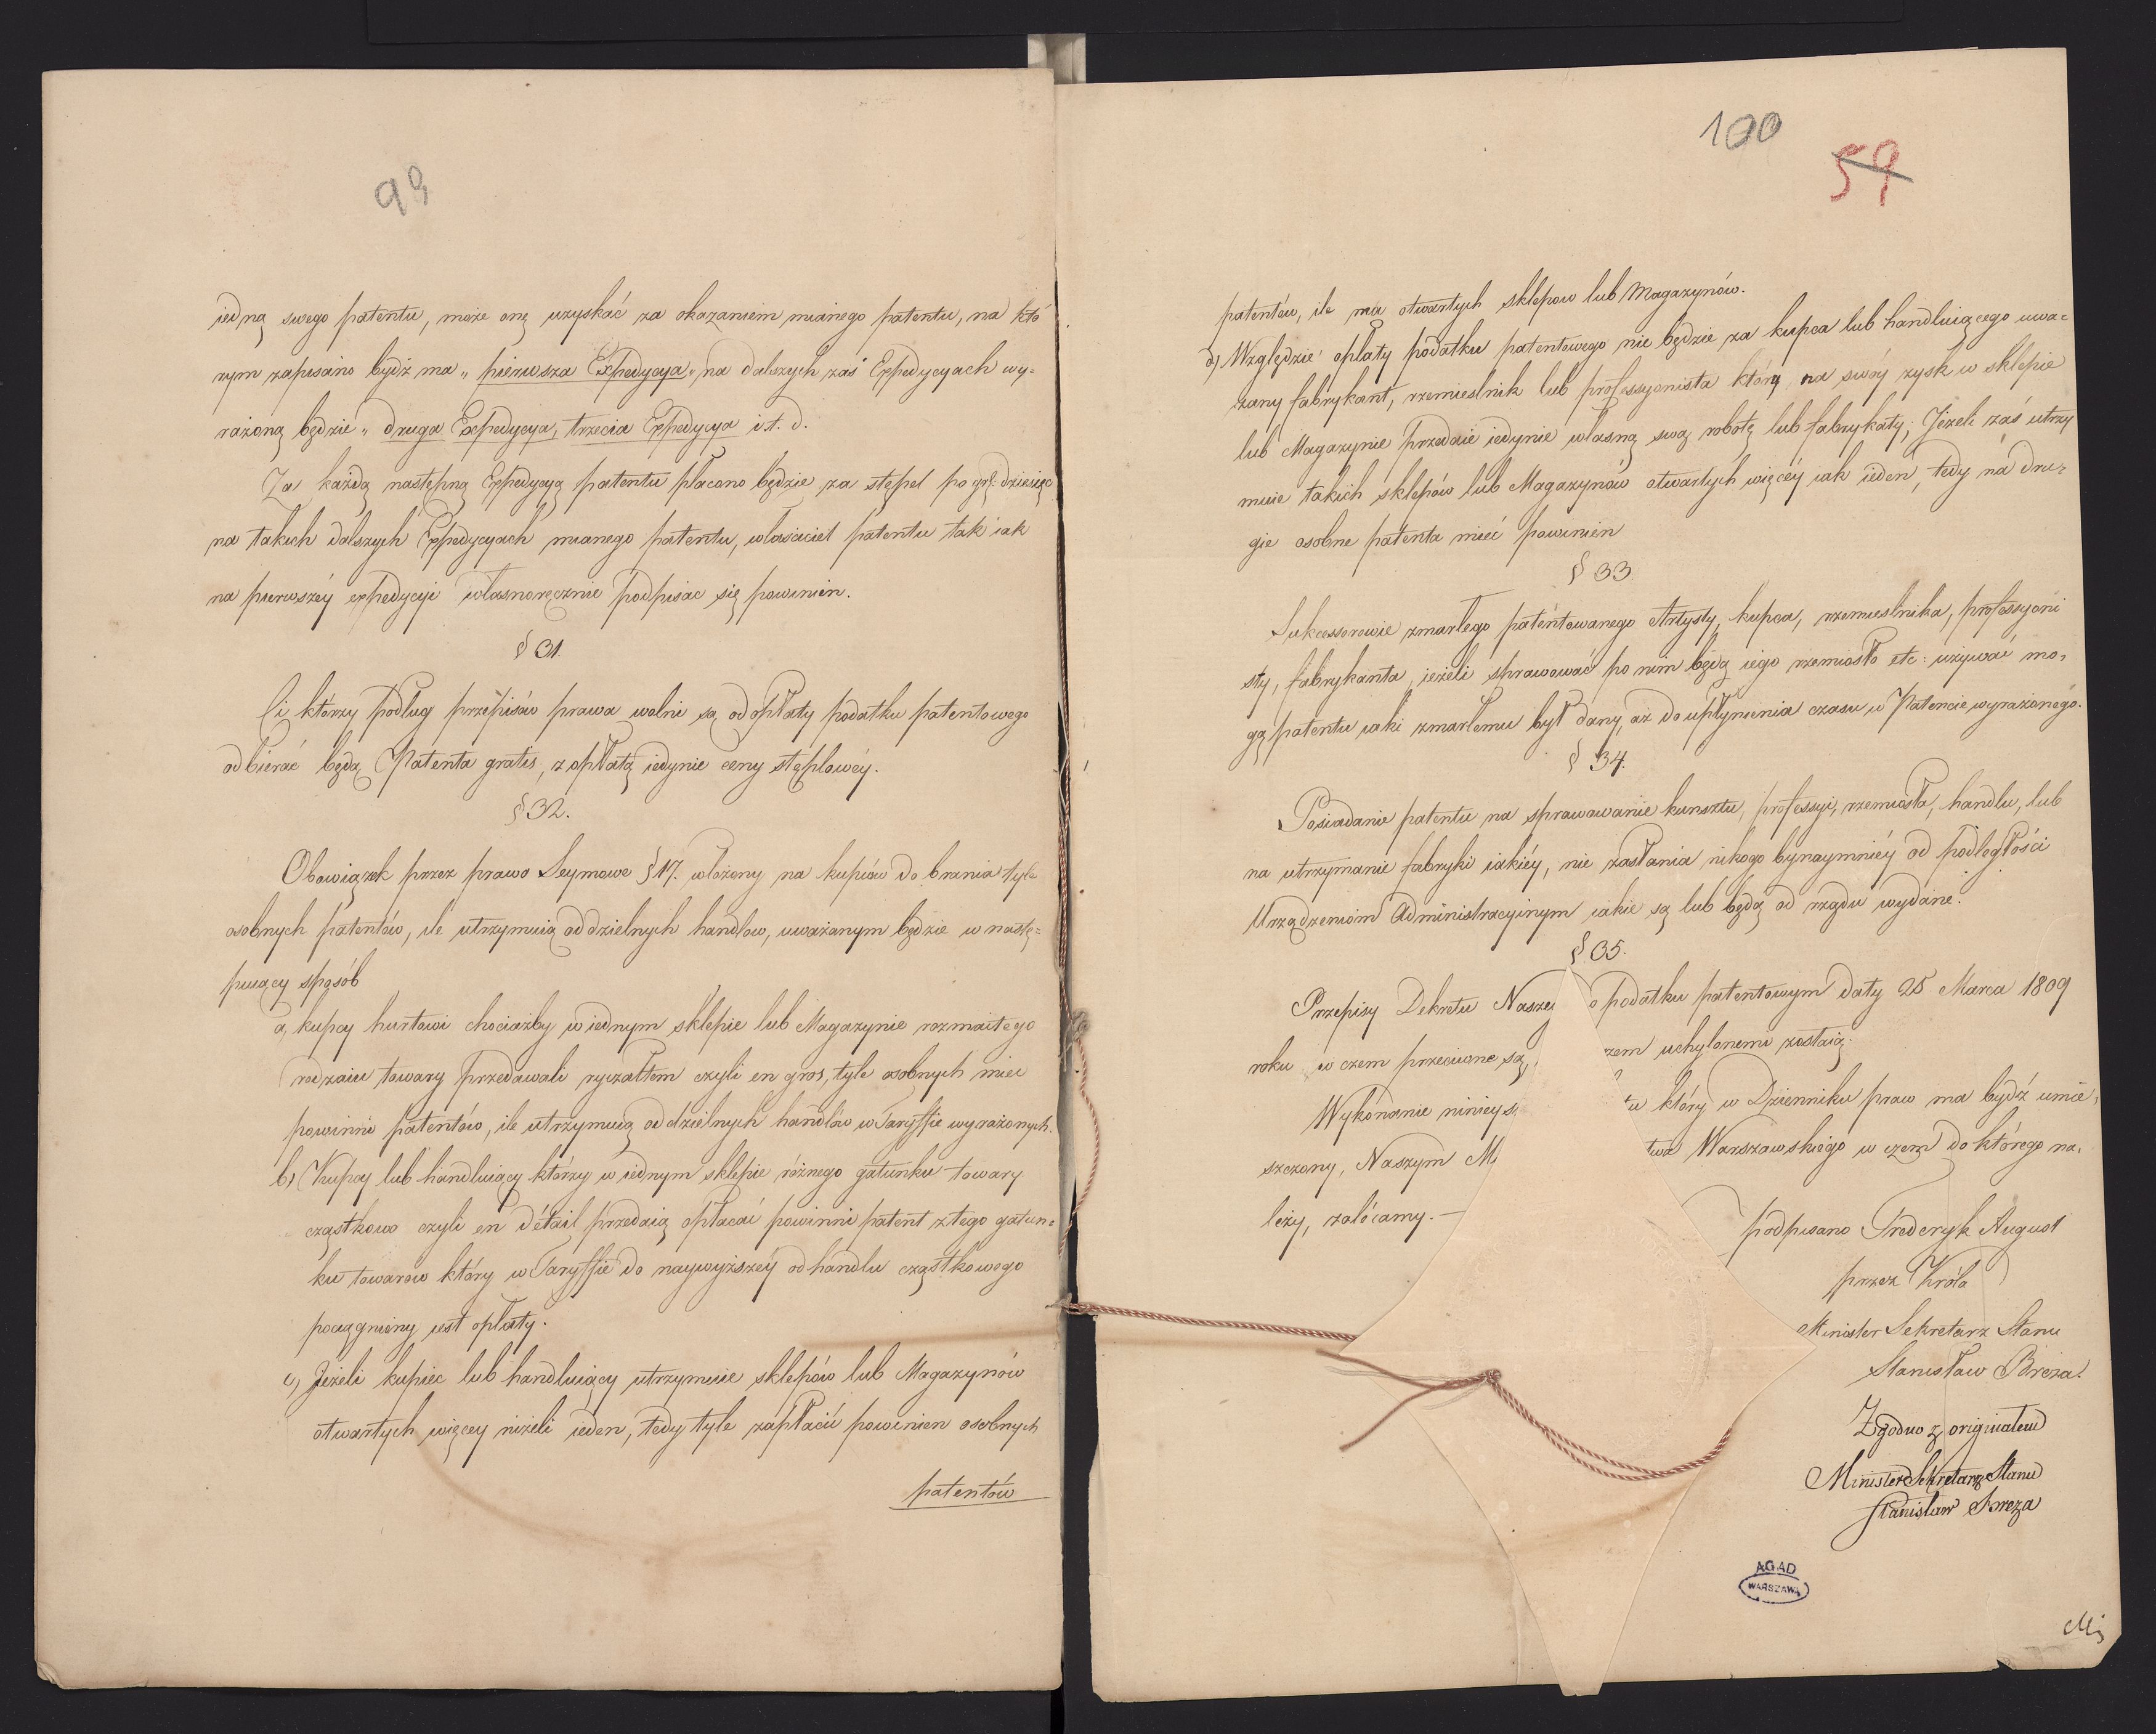 99
iedną swego patentu, może onę uzyskać za okazaniem mianego patentu, na któ
rym zapisano bydź ma „pierwsza Expedycya" na dalszych zaś Expedycyach wy-
rażoną będzie „druga Expedycya, trzecia Expedycya i t. d.
Za każdą następną Expedycyą patentu płacono będzie za stępel po gr: dziesięć
na takich dalszych Expedycyach mianego patentu, właściciel patentu tak iak
na pierwszéy expedycyi własnoręcznie podpisac się powinien.
§ 31.
Ci którzy podług przepisów prawa wolni są od opłaty podatku patentowego
odbierać będą Patenta gratis, z opłatą iedynie ceny stęplowéy.
§ 32.
Obowiązek przez prawo Seymowe § 17. włożony na kupców do brania tyle
osobnych patentów, ile utrzymuią oddzielnych handlow, uważanym będzie w nastę-
puiący sposób
a, kupcy hurtowi chociażby w iednym sklepie lub Magazynie rozmaitego
rodzaiu towary przedawali ryczałtem czyli en gros, tyle osobnych miec
powinni patentów, ile utrzymuią oddzielnych handlów w Taryffie wyrażonych.
b) Kupcy lub handluiący którzy w iednym sklepie różnego gatunku towary
cząstkowo czyli en détail przedaią opłacać powinni patent z tego gatun-
ku towarow który w Taryffie do naywyższéy od handlu cząstkowego
pociągniony iest opłaty.
c) Jeżeli kupiec lub handluiący utrzymuie sklepów lub Magazynów
otwartych więcey niżeli ieden, tedy tyle zapłacić powinien osobnych
patentów
100
59
patentów, ile ma otwartych sklepow lub Magazynów.
d) Względzie opłaty podatku patentowego nie będzie za kupca lub handluiącego uwa-
żany fabrykant, rzemieslnik lub professyonista który na swóy zysk w sklepie
lub Magazynie przedaie iedynie własną swą robotę lub fabrykaty; Jeżeli zaś utrzy
muie takich sklepów lub Magazynów otwartych więcéy iak ieden, tedy na dru-
gie osobne patenta mieć powinien
§ 33.
Sukcessorowie zmarłego patentowanego Artysty, kupca, rzemieslnika, professyoni
sty, fabrykanta, ieżeli sprawować po nim będą iego rzemiosło etc: używać mo-
gą patentu iaki zmarłemu był dany, aż do upłynienia czasu w Patencie wyrażonégo.
§ 34.
Posiadanie patentu na sprawowanie kunsztu, professyi, rzemiosła, handlu, lub
na utrzymanie fabryki iakiéy, nie zasłania nikogo bynaymniéy od podległości
Urządzeniom Administracyinym iakie są lub będą od rządu wydane.
§ 35.
Przepisy Dekretu Nasze o podatku patentowym daty 25 Marca 1809
roku w czem przeciwne są, zem uchylonemi zostaią.
Wykonanie ninieys. tu który w Dzienniku praw ma bydź umie-
szczony, Naszym M twa Warszawskiego w czem do którego na-
leży, zalécamy. —
podpisano Frederyk August
przez Króla
Minister Sekretarz Stanu
Stanisław Breza.
Zgodno z originałem
Minister Sekretarz Stanu
Stanisław Breza
AGAD
WARSZAWA